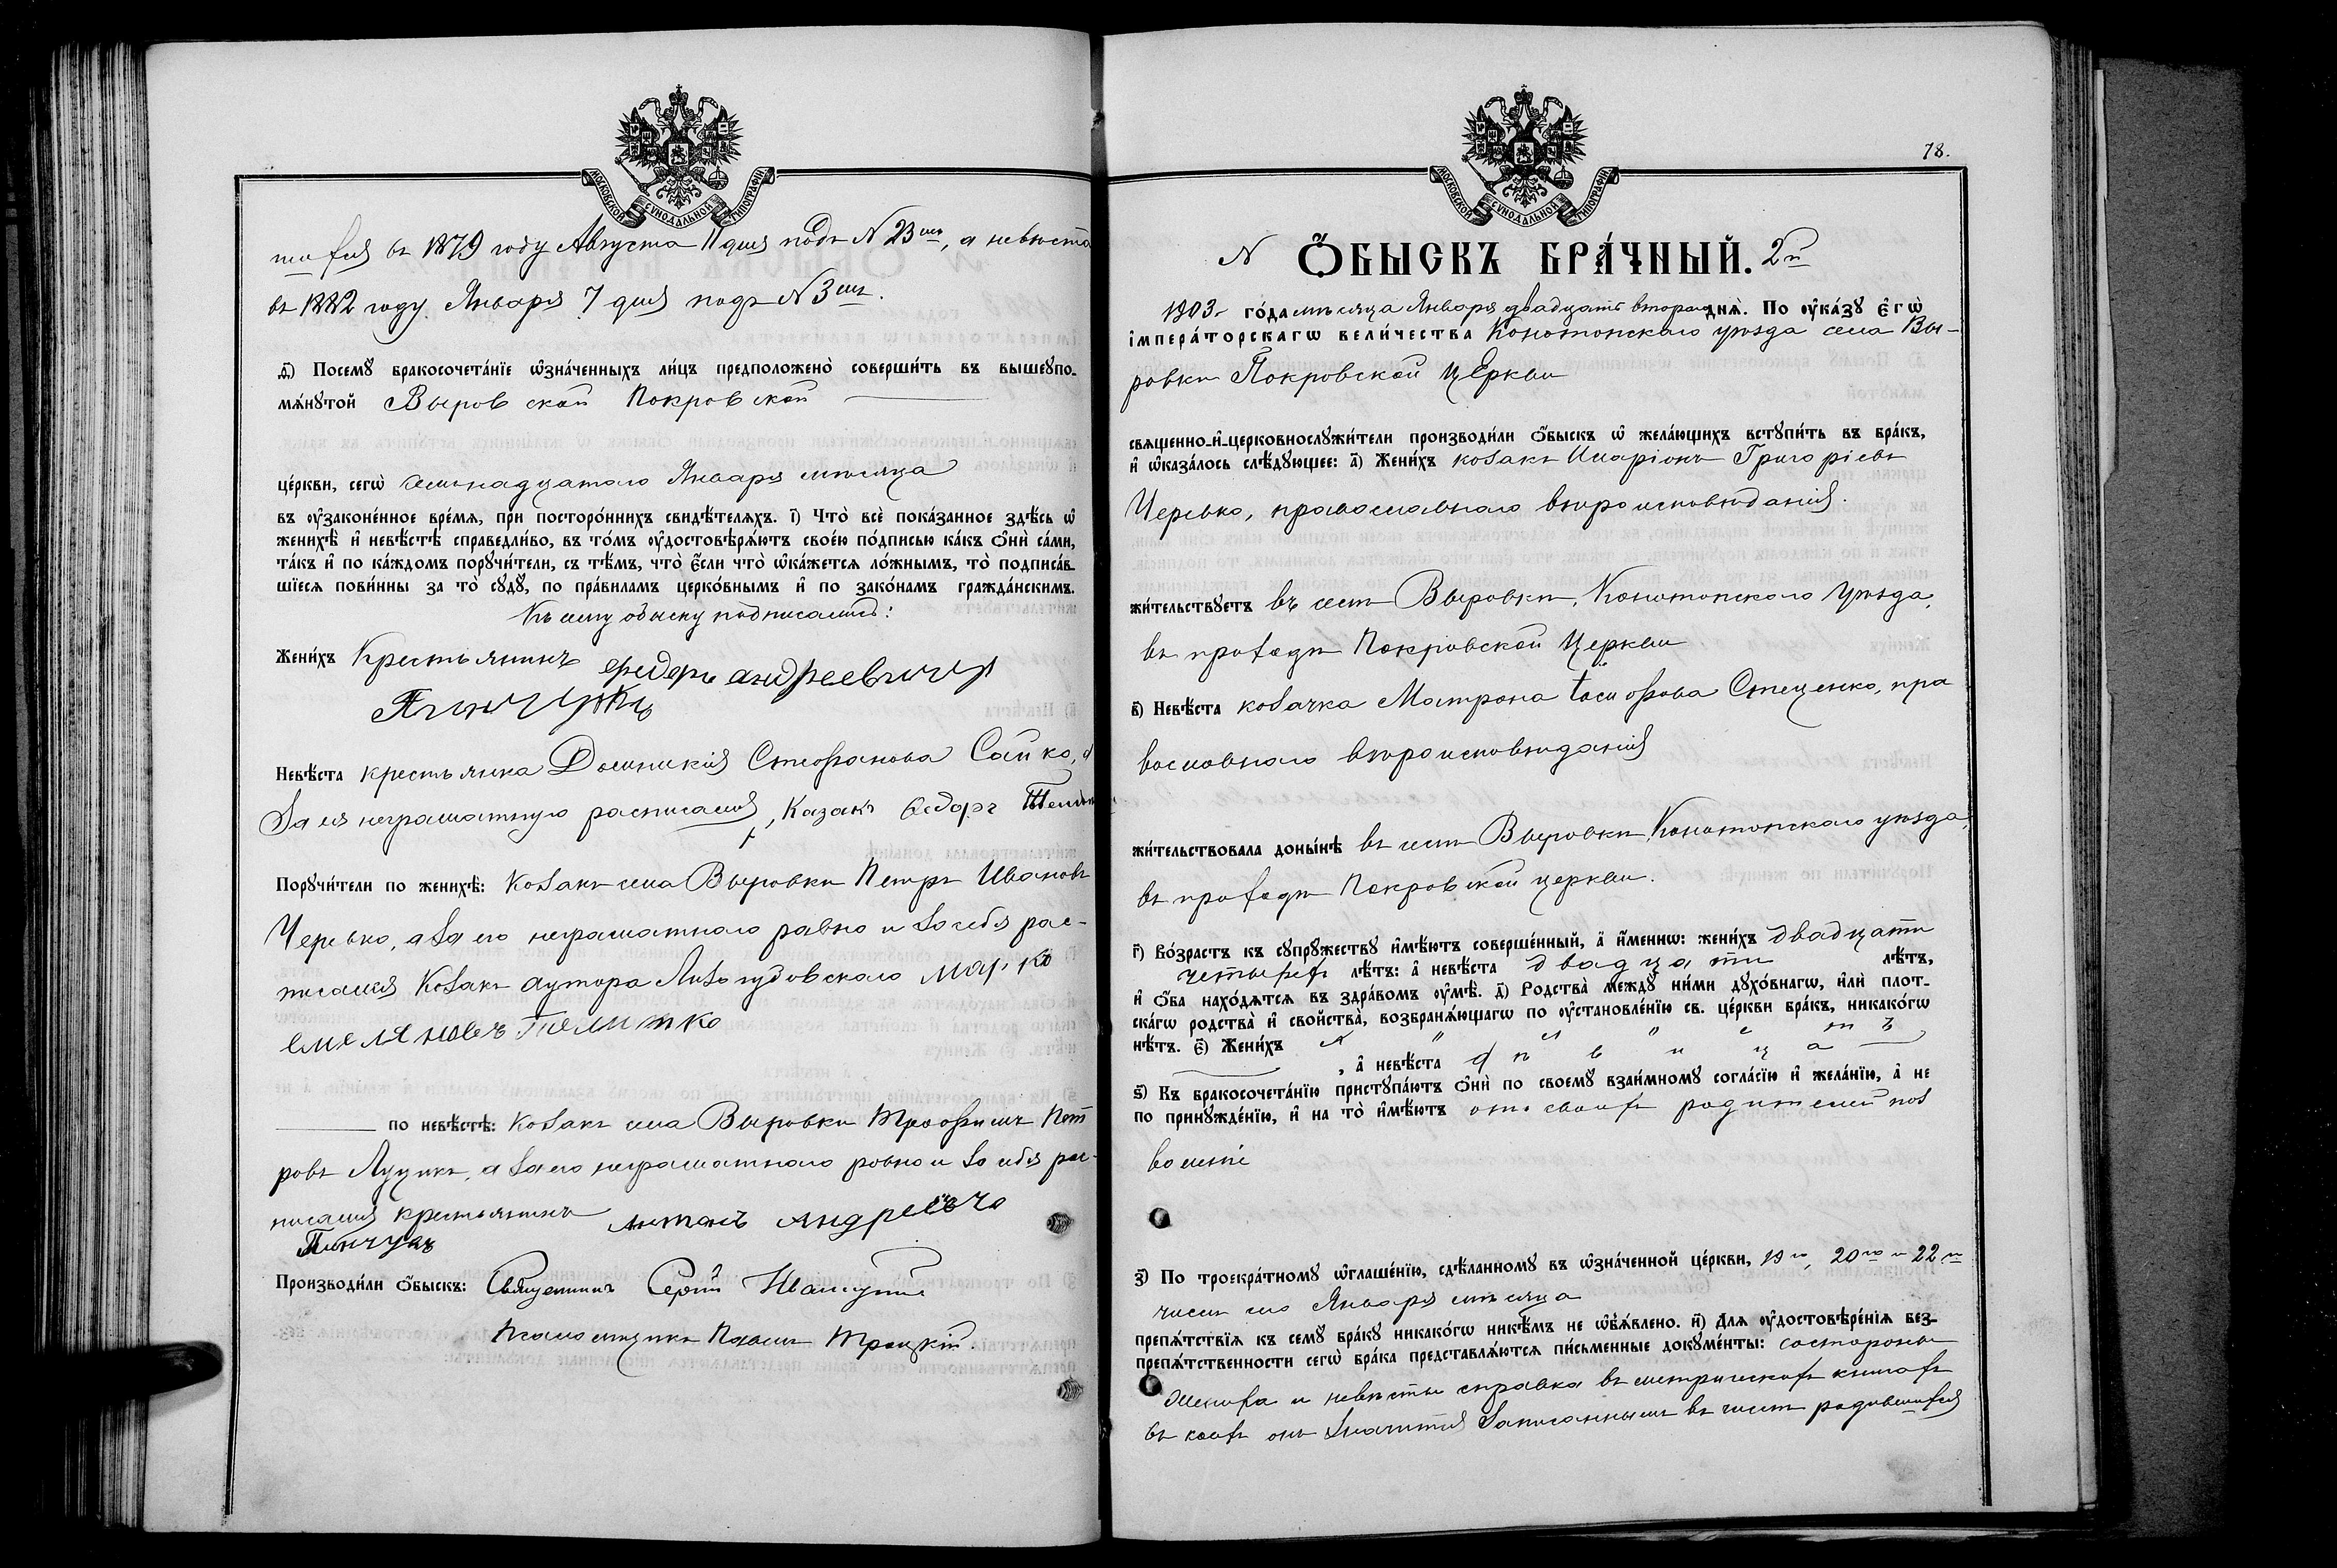 МОСКОВСКОЙ СУНОДАЛЬНОЙ ТИПОГРАФІИ
шихся въ 1879 году Августа 11 дня подъ N 23мъ, а невѣста
въ 1882 году Января 7 дня подъ N 3мъ.
ѳ҃) Посемꙋ бракосочета́нїе ѡ҆зна́ченныхъ ли́цъ предположено̀ соверши́ть въ вышеꙋпо-
мѧ́нꙋтой Выровской Покровской
це́ркви, сегѡ̀ семьнадцатого Января мѣсяца
въ ᲂу҆законе́нное вре́мѧ, при посторо́ннихъ свидѣ́телѧхъ. і҃) Что̀ всѐ пока́занное здѣ́сь ѡ҆
женихѣ̀ и҆ невѣ́стѣ справедли́во, въ то́мъ ᲂу҆достовѣрѧ́ютъ свое́ю по́дписью ка́къ ѻ҆нѝ са́ми,
та́къ и҆ по ка́ждомъ порꙋчи́тели, съ тѣ́мъ, что̀ є҆́сли что̀ ѡ҆ка́жетсѧ ло́жнымъ, то̀ подписа́в-
шїесѧ пови́нны за то̀ сꙋдꙋ̀, по пра́виламъ церко́внымъ и҆ по зако́намъ гражда́нскимъ.
Къ сему обыску подписались:
Жени́хъ Крестьянинъ федоръ андреевичъ
Пинчукъ
Невѣ́ста крестьянка Домникія Стефанова Сайко, а
за ея неграмотную росписался, Казакъ Ѳедоръ
Порꙋчи́тели по женихѣ̀: Козакъ села Выровки Петръ Ивановъ
Черевко, а за его неграмотного равно и за себя рос-
писался Козакъ хутора Лизогубовского Марко
емеляновъ
по невѣ́стѣ: Козакъ села Выровки Трофимъ Пет
ровъ Луцикъ, а за его неграмотного ровно и за себя рос-
писался крестьянинъ антонъ андреевъ
Пинчукъ
Производи́ли ѻ҆́быскъ: Священникъ Сергій
Псаломщикъ Павелъ Троцкій.
78.
МОСКОВСКОЙ СУНОДАЛЬНОЙ ТИПОГРАФІИ
N Ѻ҆́БЫСКЪ БРА́ЧНЫЙ. 2й
1903- го́да мѣсяца Января двадцать второго днѧ̀. По ᲂу҆ка́зꙋ є҆гѡ̀
і҆мпера́торскагѡ вели́чества Конотопскаго уѣзда села Вы-
ровки Покровской Церкви
свѧщенно-и҆-церковнослꙋжи́тели производи́ли ѻ҆́быскъ ѡ҆ жела́ющихъ встꙋпи́ть въ бра́къ,
и҆ ѡ҆каза́лось слѣ́дꙋющее: а҃) Жени́хъ козакъ Иларіонъ Григоріевъ
Черевко, православного вѣроисповѣданія.
жи́тельствꙋетъ въ селѣ Выровкѣ, Конотопского Уѣзда,
въ приходѣ Покровской Церкви
в҃) Невѣ́ста козачка Матрона Іосифова Стеценко, пра
вославного вѣроисповѣданія
жи́тельствовала доны́нѣ въ селѣ Выровки Конотопскаго уѣзда,
въ приходѣ Покровской церкви.
г҃) Во́зрастъ къ сꙋпрꙋжествꙋ и҆мѣ́ютъ соверше́нный, а҆ и҆́меннѡ: жени́хъ двадцати
четырехъ лѣ́тъ: а҆ невѣ́ста двадцати лѣ́тъ,
и҆ ѻ҆́ба нахо́дѧтсѧ въ здра́вомъ ᲂу҆мѣ̀. д҃) Родства̀ междꙋ ни́ми дꙋхо́внагѡ, и҆лѝ плот-
ска́гѡ родства̀ и҆ свойства̀, возбранѧ́ющагѡ по ᲂу҆становле́нїю св. це́ркви бра́къ, никако́гѡ
нѣ́тъ. є҃) Жени́хъ холостъ
, а҆ невѣ́ста дѣвица
ѕ҃) Къ бракосочета́нїю пристꙋпа́ютъ ѻ҆нѝ по своемꙋ̀ взаи́мномꙋ согла́сїю и҆ жела́нїю, а҆ не
по принꙋжде́нїю, и҆ на то̀ и҆мѣ́ютъ отъ своихъ родителей поз
воленіе
з҃) По троекра́тномꙋ ѡ҆глаше́нїю, сдѣ́ланномꙋ въ ѡ҆зна́ченной це́ркви, 19го, 20го и 22го
числъ сего Января мѣсяца
препѧ́тствїѧ къ семꙋ̀ бра́кꙋ никако́гѡ никѣ́мъ не ѡ҆б̾ѧ́влено. и҃) Для ᲂу҆достовѣре́нїѧ без-
препѧ́тственности сегѡ̀ бра́ка представлѧ́ютсѧ пи́сьменные докꙋме́нты: состороны
жениха и невѣсты справка въ метрическихъ книгахъ
въ коихъ онъ значится записаннымъ въ числѣ родившихся